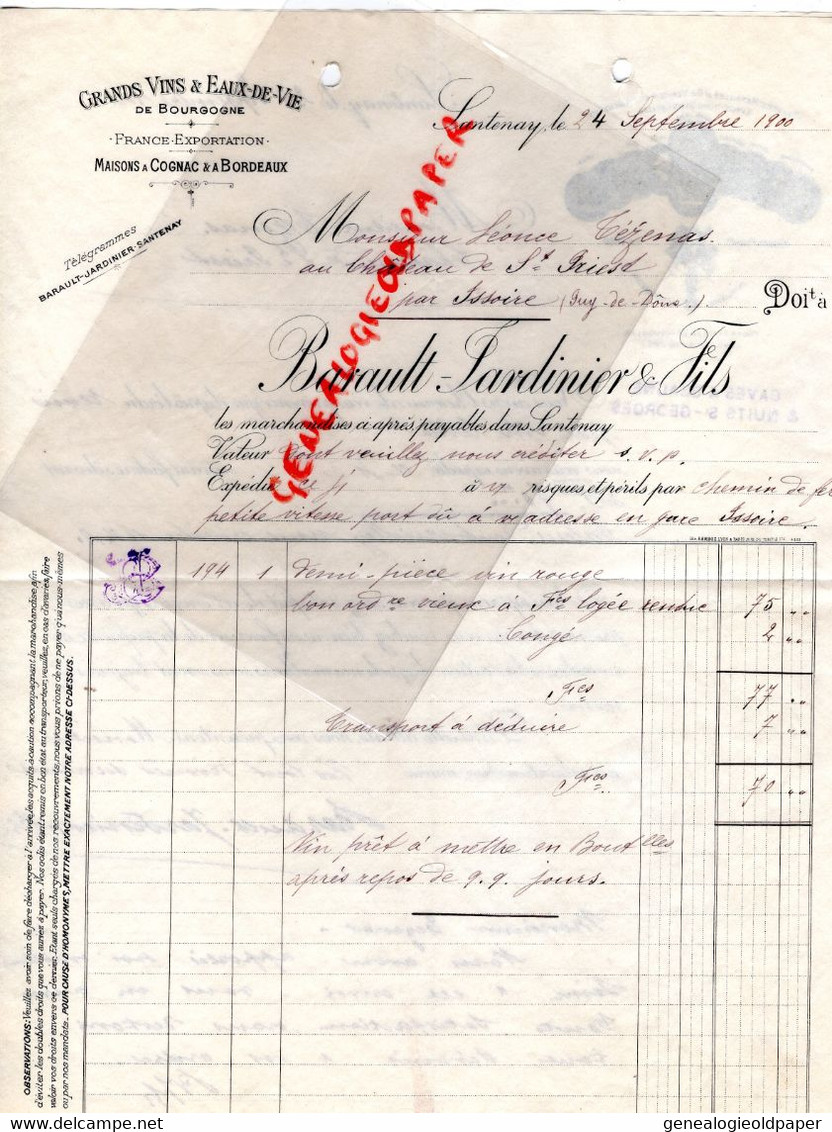 GRANDS VINS & EAUX-DE-VIE
DE BOURGOGNE
FRANCE-EXPORTATION
MAISONS A COGNAC & A BORDEAUX
Télégrammes
BARAULT-JARDINIER-SANTENAY
Santenay, le 24 Septembre 1900
Monsieur Léonce Tézenas
au Château de St Priest
par Issoire (Puy-de-Dôme) Doit à
Barault-Jardinier & Fils
les marchandises ci après, payables dans Santenay
Valeur dont veuillez nous créditer s.v.p.
Expédié à vs risques et périls par chemin de fer
petite vitesse port dû à v/ adresse en gare Issoire.
194 1 demi-pièce vin rouge
bon ordre vieux à Fcs logée rendue 75 "
Congé 2 "
Fcs 77 "
Transport à déduire 7 "
Fcs 70 "
Vin prêt à mettre en Boutlles
après repos de q.q. jours.
OBSERVATIONS: Veuillez avoir soin de faire décharger à l'arrivée les acquits à caution accompagnant la marchandise afin
d'éviter les doubles droits que vous auriez à payer. Nos colis étant remis en bon état au transporteur, veuillez, en cas d'avaries, faire
valoir vos droits envers ce dernier. Etant seuls chargés de nos recouvrements, nous vous prions de ne payer qu'à nous-mêmes
ou par nos mandats. POUR CAUSE D'HOMONYMES, METTRE EXACTEMENT NOTRE ADRESSE CI-DESSUS.
GENEALOGIEOLDPAPER
genealogieoldpaper